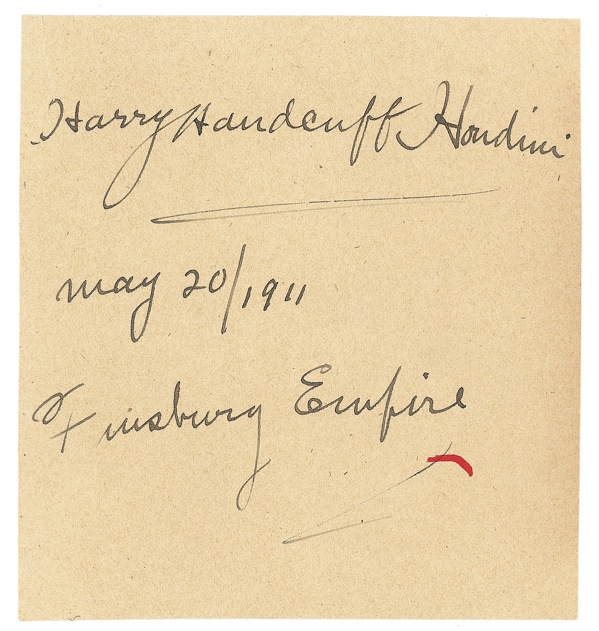 Harry Handcuff Houdini
may 20/1911
Finsburg Empire